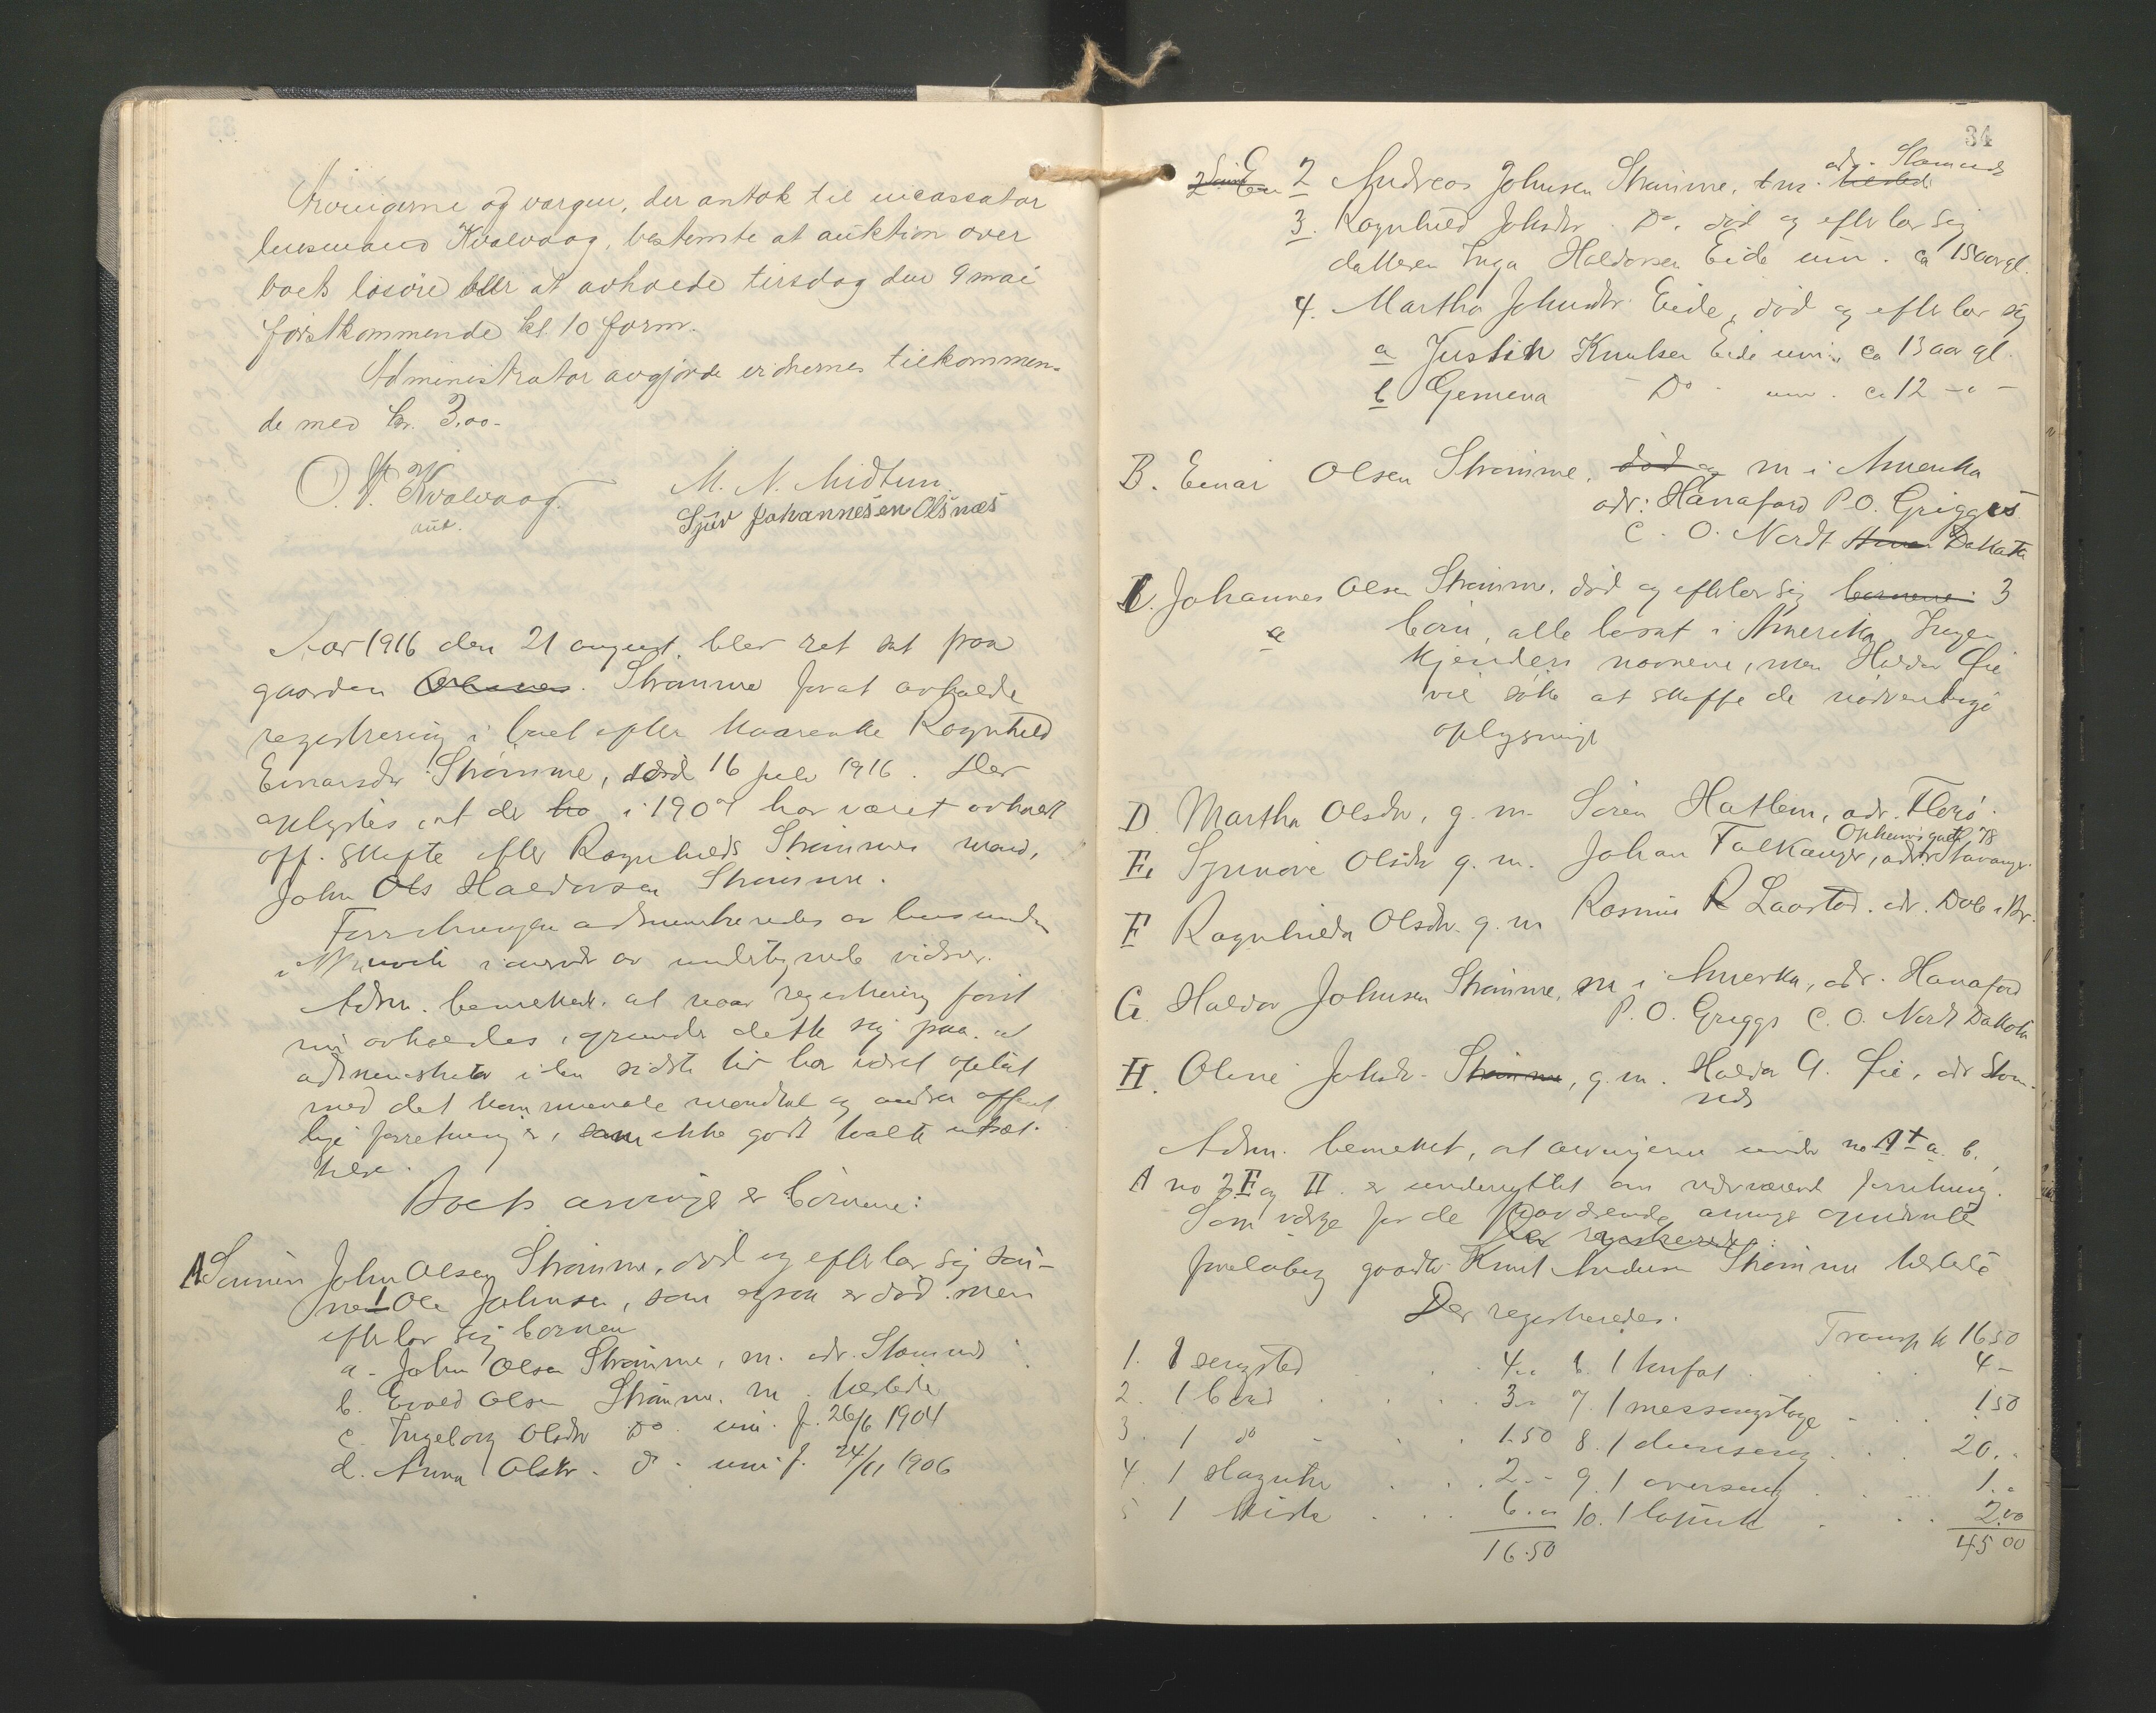 Arvingerne og værgen, der antok til incassator
lensmand Kvalvaag, bestemte at auktion over
boets løsøre blir at avholde tirsdag den 9 mai
førstkommende kl. 10 form.
Administrator avgjorde vidnernes tilkommen-
de med kr. 3.00-
O. A. Kvalvaag
aut.
M. N. Midtun
Sjur Johannesen Olsnæs
Aar 1916 den 21 august blev ret sat paa
gaarden Strømme for at avholde
registrering i boet efter kaarenke Ragnhild
Einarsdr Strømme, død 16 juli 1916. Der
oplystes, at der ho i 1909 har været avholdt
off. skifte efter Ragnhilds Strømmes mand,
John Ols Haldorsen Strømme.
Forretningen administreredes av lensmanden
i nærvær av undertegnede vidner.
Adm. bemerket at naar registrering først
nu avholdes, grunder dette sig paa at
administrator i den sidste tid har været optat
med det kommunale mandtal og andre offent
lige forretninger, som ikke godt kunde utsæt-
tes.
Boets arvinger er børnene:
A Sønnen John Olsen Strømme, død og efterlar sig søn-
nen 1 Ole Johnsen, som ogsaa er død men
efterlar sig børnen
a. John Olsen Strømme, m. adr. Stamnes
b. Eivald Olsen Strømme, m. hersteds
c. Ingeborg Olsdr Do um. f. 26/6 1904
d. Anna Olsdr. Do um. f. 24/11 1906
34
2 Andreas Johnsen Strømme, m. adr. Stamnes hersteds
3. Ragnhild Johsdr. Do. død og efterlar sig
datteren Inga Haldorsen Eide um. ca 15 aar gl.
4. Martha Johnsdr. Eide, død og efterlar sig
a Justin Knutsen Eide um. ca 13 aar gl.
b Gemena Do um. ca 12 -"-
B. Einar Olsen Strømme, død og m i Amerika
adr: Hanaford P.O. Griggs
C. O. Nordt Amer Dakota
C. Johannes Olsen Strømme, død og efterlar sig børnene 3
a børn, alle bosat i Amerika. Ingen
kjender navnene, men Haldor Øie
vil søke at skaffe de nødvendige
oplysninger
D. Martha Olsdr, g. m. Søren Hatlem, adr. Florø.
E. Synnøve Olsdr g. m. Johan Falkanger, adr. Stavanger.
Opheimsgate 78
F Ragnhilda Olsdr. g. m Rasmus R Laastad. adr. Dale i Br.
G. Haldor Johnsen Strømme, m i Amerika, adr. Hanaford
P. O. Griggs C. O. Nord Dakota
H. Oline Johsdr- Strømme, g. m. Haldor A. Øie, adr Stam-
nes
Adm. bemerket, at arvingerne under no A 1 a. b.,
A no 2 F og H. er underrettet om nærværende forretning.
Som værge for de fraværende arvinger opnævnte
Der registrertes:
foreløbig gaardbr Knut Andersen Strømme hersteds
Der registreredes.
Transp kr 16 50
1. 1 sengsted . . 4.- 6. 1 kufat . . . 4 -
2. 1 bord . . . 3.- 7. 1 messingstage - . . 1 50
3. 1 do - . . 1.50 8. 1 dunseng . . 20.-
4. 1 slagur . . . 2.- 9. 1 overseng . . 1.-
5 1 kiste . . . 6.- 10. 1 . . . 2.00
16.50 45 00